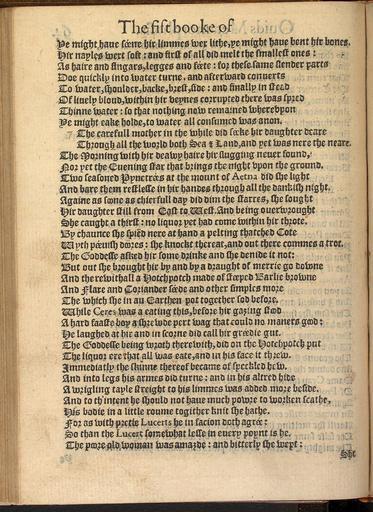 The fift booke of
Ye might haue seene hir limmes wex lithe, ye might haue bent hir bones.
Hir nayles wext soft: and first of all did melt the smallest ones:
As haire and fingars, legges and feete: for these same slender parts
Doe quickly into water turne, and afterward conuerts
To water, shoulder, backe, brest, side: and finally in stead
Of liuely bloud, within hir veynes corrupted there was spred
Thinne water: so that nothing now remained wherevpon
Ye might take holde, to water all consumed was anon.
The carefull mother in the while did seeke hir daughter deare
Through all the world both Sea & Land, and yet was nere the neare.
The Morning with hir deawy haire hir slugging neuer found,
Nor yet the Euening star that brings the night vpon the ground.
Two seasoned Pynetrees at the mount of Aetna did she light
And bare them restlesse in hir handes through all the dankish night.
Againe as soone as chierfull day did dim the starres, she sought
Hir daughter still from East to West. And being ouerwrought
She caught a thirst: no liquor yet had come within hir throte.
By chaunce she spied nere at hand a pelting thatched Cote
Wyth peeuish doores: she knockt thereat, and out there commes a trot.
The Goddesse asked hir some drinke and she denide it not:
But out she brought hir by and by a draught of merrie go downe
And therewithall a Hotchpotch made of steeped Barlie browne
And Flaxe and Coriander seede and other simples more
The which she in an Earthen pot together sod before.
While Ceres was a eating this, before hir gazing stood
A hard faaste boy a shrewde pert wag that could no maners good:
He laughed at hir and in scorne did call hir greedie gut.
The Goddesse being wroth therewith, did on the Hotchpotch put
The liquor ere that all was eate, and in his face it threw.
Immediatly the skinne thereof became of speckled hew,
And into legs his armes did turne: and in his altred hide
A wrigling tayle streight to his limmes was added more beside.
And to th'intent he should not haue much powre to worken scathe,
His bodie in a little roume togither knit she hathe.
For as with pretie Lucerts he in facion doth agree:
So than the Lucert somewhat lesse in euery poynt is he.
The poore old woman was amazde: and bitterly she wept:
She